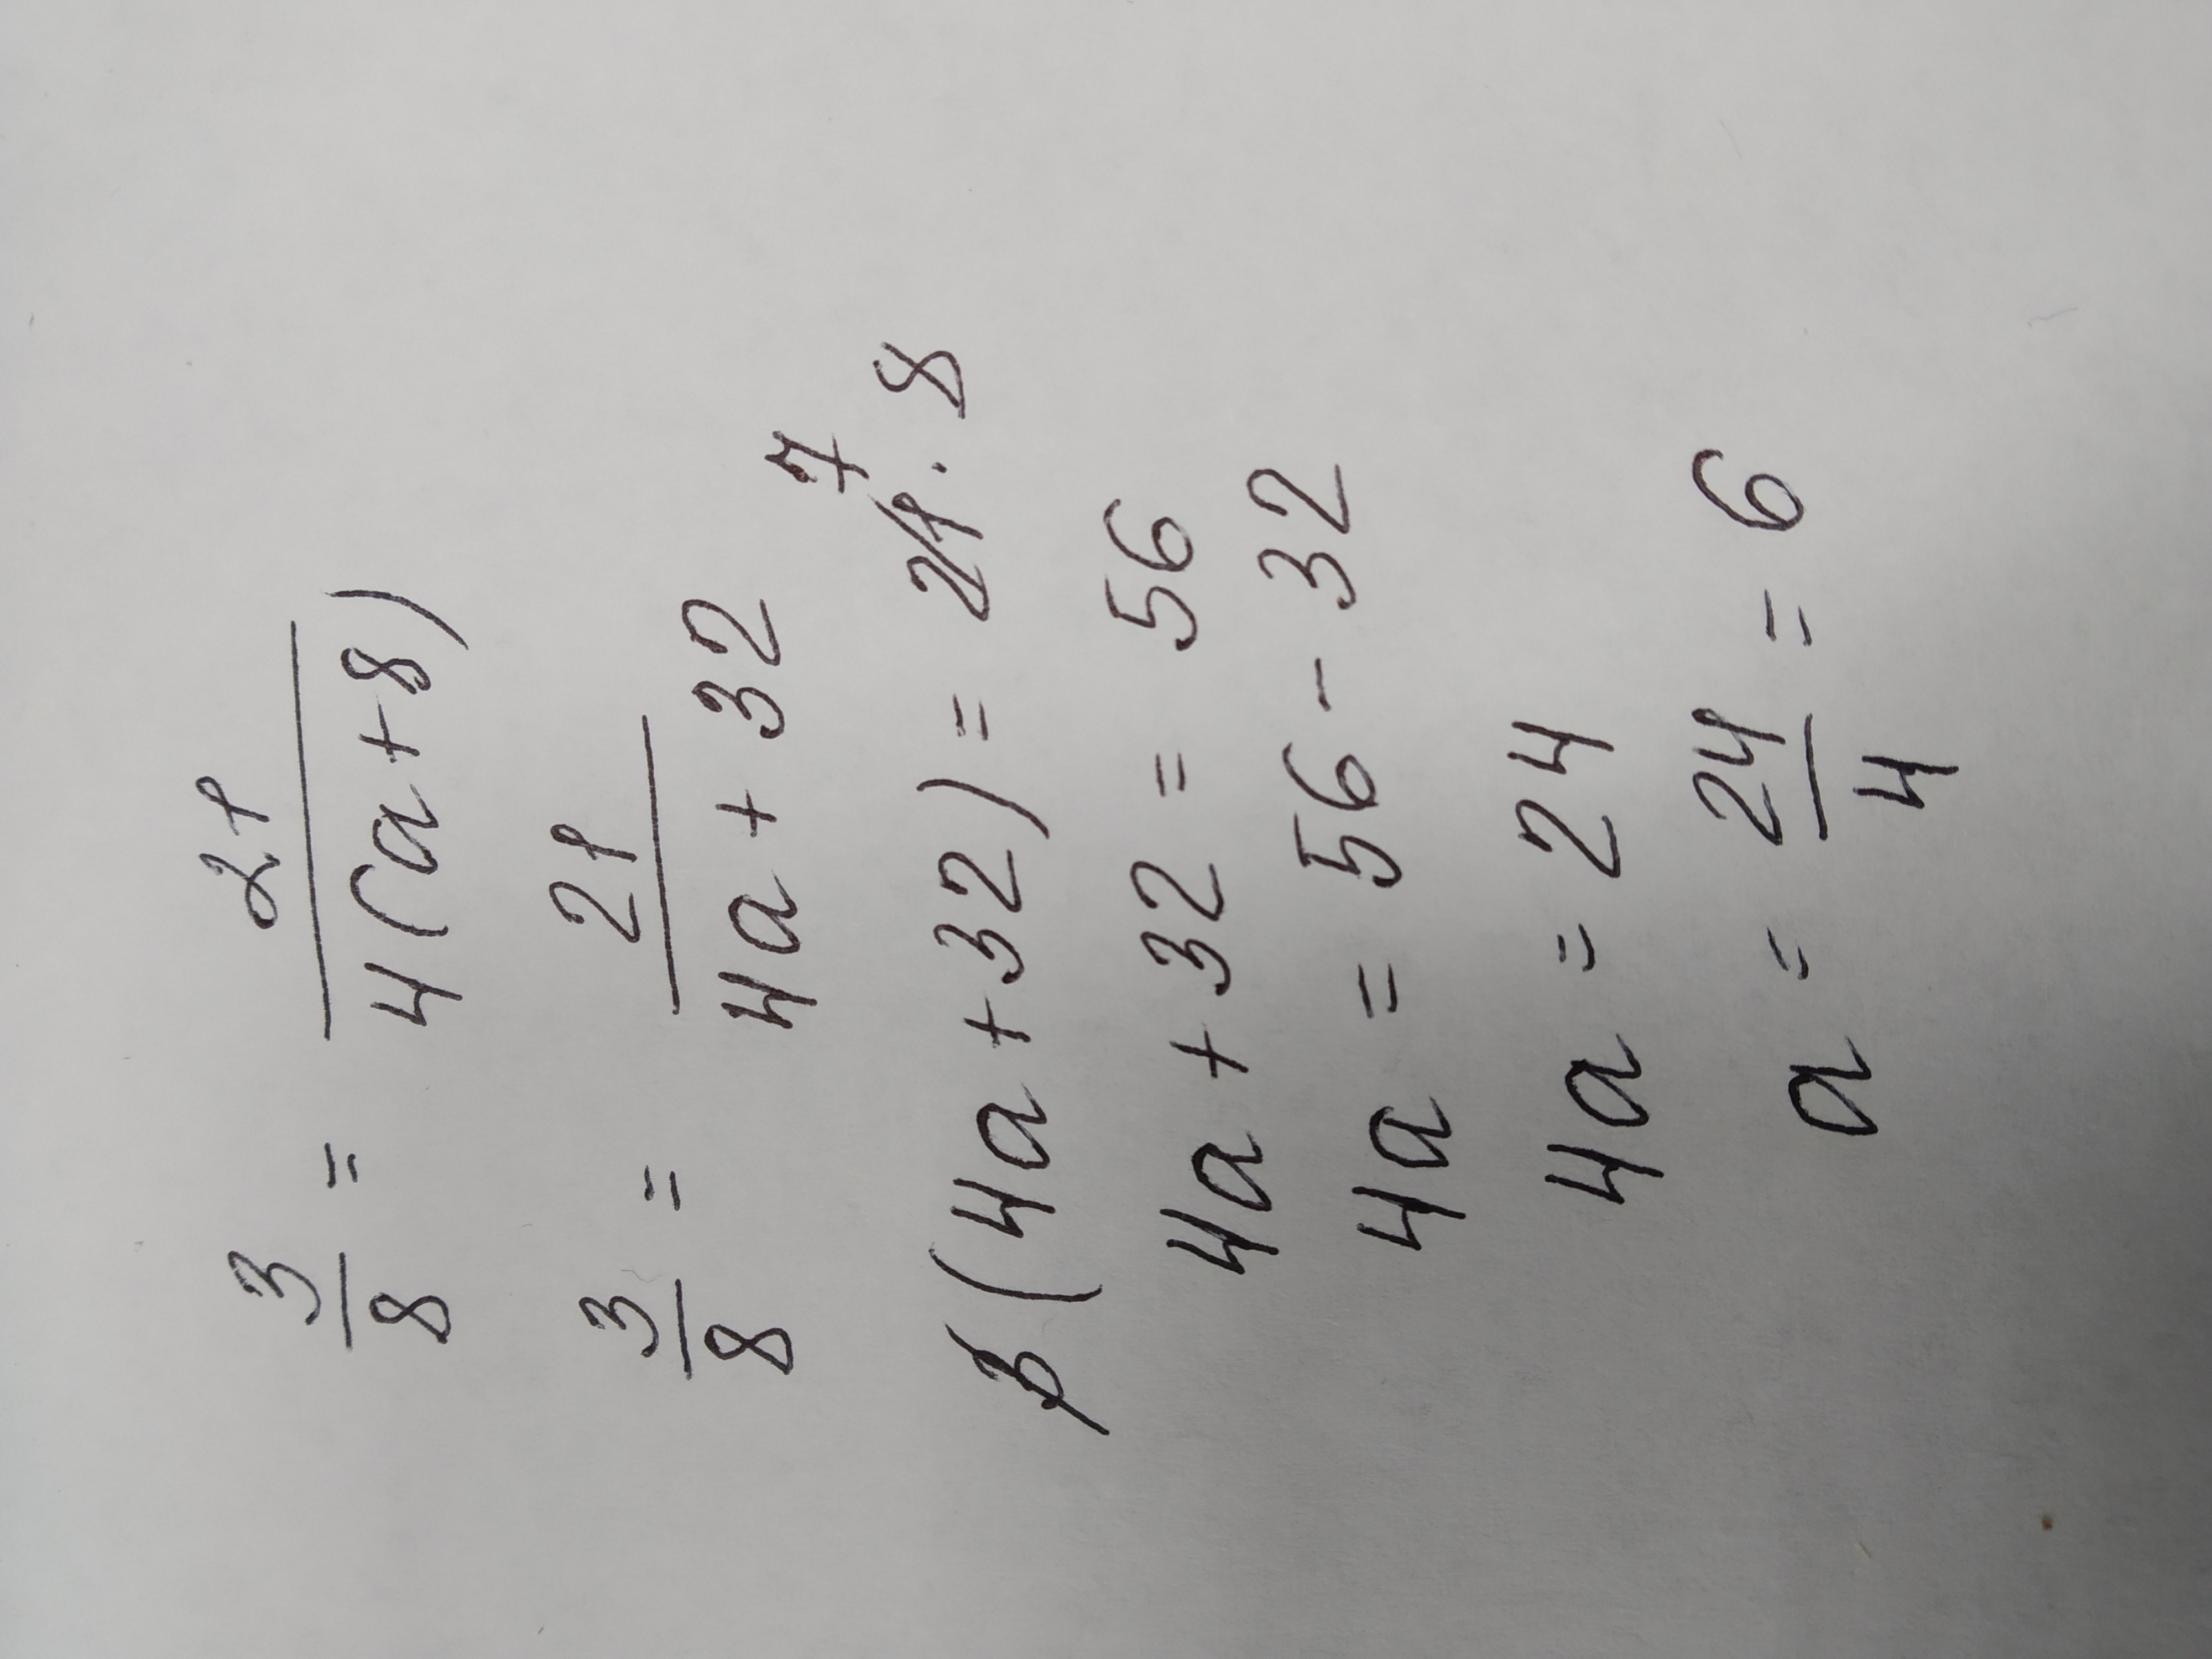 3/8 = 21/4(a+8)
3/8 = 21/4a+32
3(4a+32) = 21·8 7
4a+32 = 56
4a = 56-32
4a = 24
a = 24/4 = 6